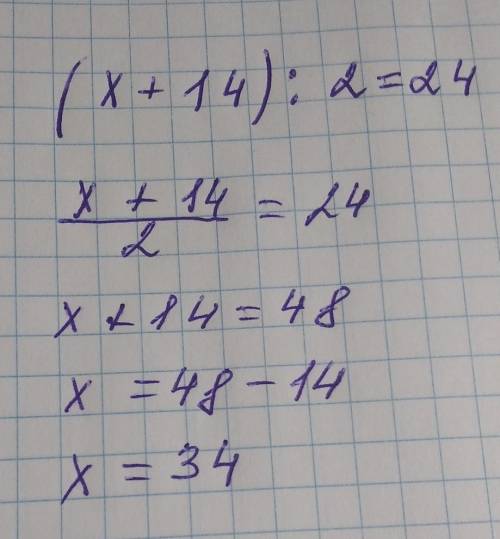 (x + 14) : 2 = 24
x + 14 / 2 = 24
x + 14 = 48
x = 48 - 14
x = 34